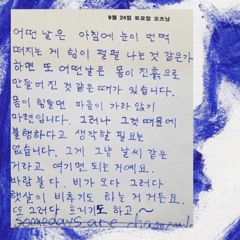 9월 24일 토요일 오전남
어떤날은 아침에 눈이 번쩍
떠지는 게 힘이 펄펄 나는 것 같은가
하면 또 어떤날은 몸이 진흙으로
만들어진 것 같은 때가 있습니다.
몸이 힘들면 마음이 가라앉기
마련입니다. 그러나 그것 때문에
불행하다고 생각할 필요는
없습니다. 그게 그냥 날씨 같은
거라고 여기면 되는 거예요.
바람 불다. 비가 오다 그러다
햇살이 비추기도 하는 거거든요.
또 그러다 흐리기도 하고,~
somedays are diamond